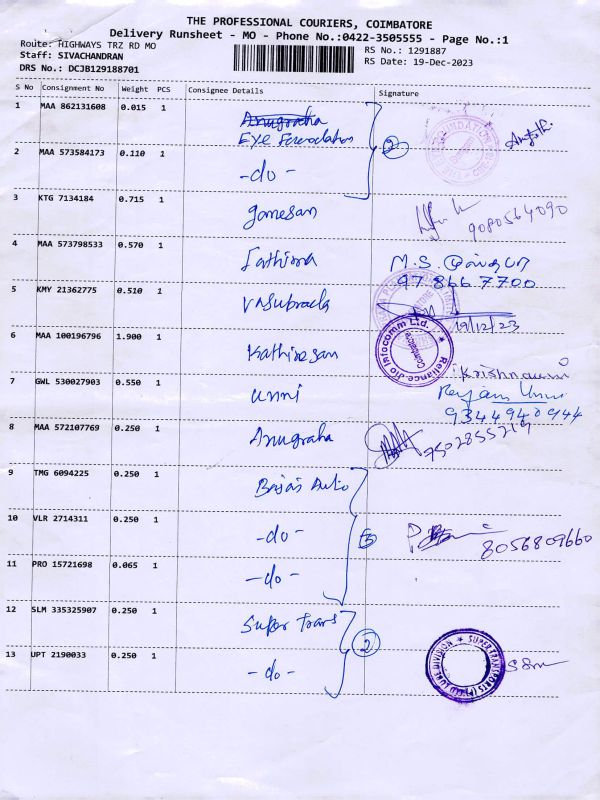 THE PROFESSIONAL COURIERS, COIMBATORE
Delivery Runsheet - MO - Phone No.:0422-3505555 - Page No.:1
Route: HIGHWAYS TRZ RD MO
RS No.: 1291887
Staff: SIVACHANDRAN
RS Date: 19-Dec-2023
DRS No.: DCJB129188701
S No Consignment No Weight PCS Consignee Details Signature
1 MAA 862131608 0.015 1 Anugraha
Eye Foundation
2
2 MAA 573584173 0.110 1 -do-
3 KTG 7134184 0.715 1 ganesan
9080564090
4 MAA 573798533 0.570 1 Fathima M.S
97866 7700
5 KMY 21362775 0.510 1
19/12/23
Reliance Jio Infocomm Ltd.
Coimbatore
6 MAA 100196796 1.900 1 Kathiresan
7 GWL 530027903 0.550 1 unni
9344940944
8 MAA 572107769 0.250 1 Anugraha
7502855219
9 TMG 6094225 0.250 1 Bajaj Auto
10 VLR 2714311 0.250 1 -do- 3
8056809660
11 PRO 15721698 0.065 1 -do-
12 SLM 335325907 0.250 1 Super Trans
2
SUPER TRANSPORTS (P) LTD LUBE DIVISION
13 UPT 2190033 0.250 1 -do-